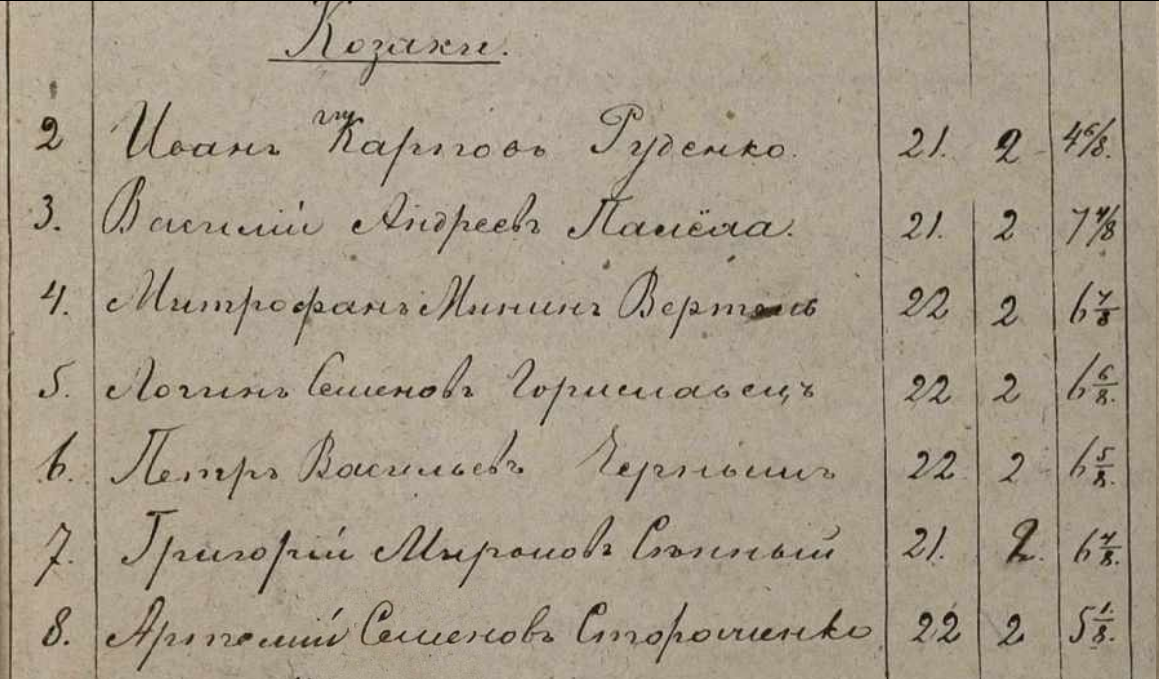 Козаки.
2 Иванъ Карповъ Руденко. 21. 2 4 6/8.
3. Василій Андреевъ 21. 2 7 4/8
4. Митрофанъ Мининъ Вертель 22 2 6 4/8
5. Логинъ Семеновъ Гориславецъ 22 2 6 6/8.
6. Петръ Васильевъ Чернышъ 22 2 6 5/8.
7. Григорій Мироновъ Сѣнный 21. 2. 6 4/8.
8. Артемій Семеновъ Стороженко 22 2 5 1/8.